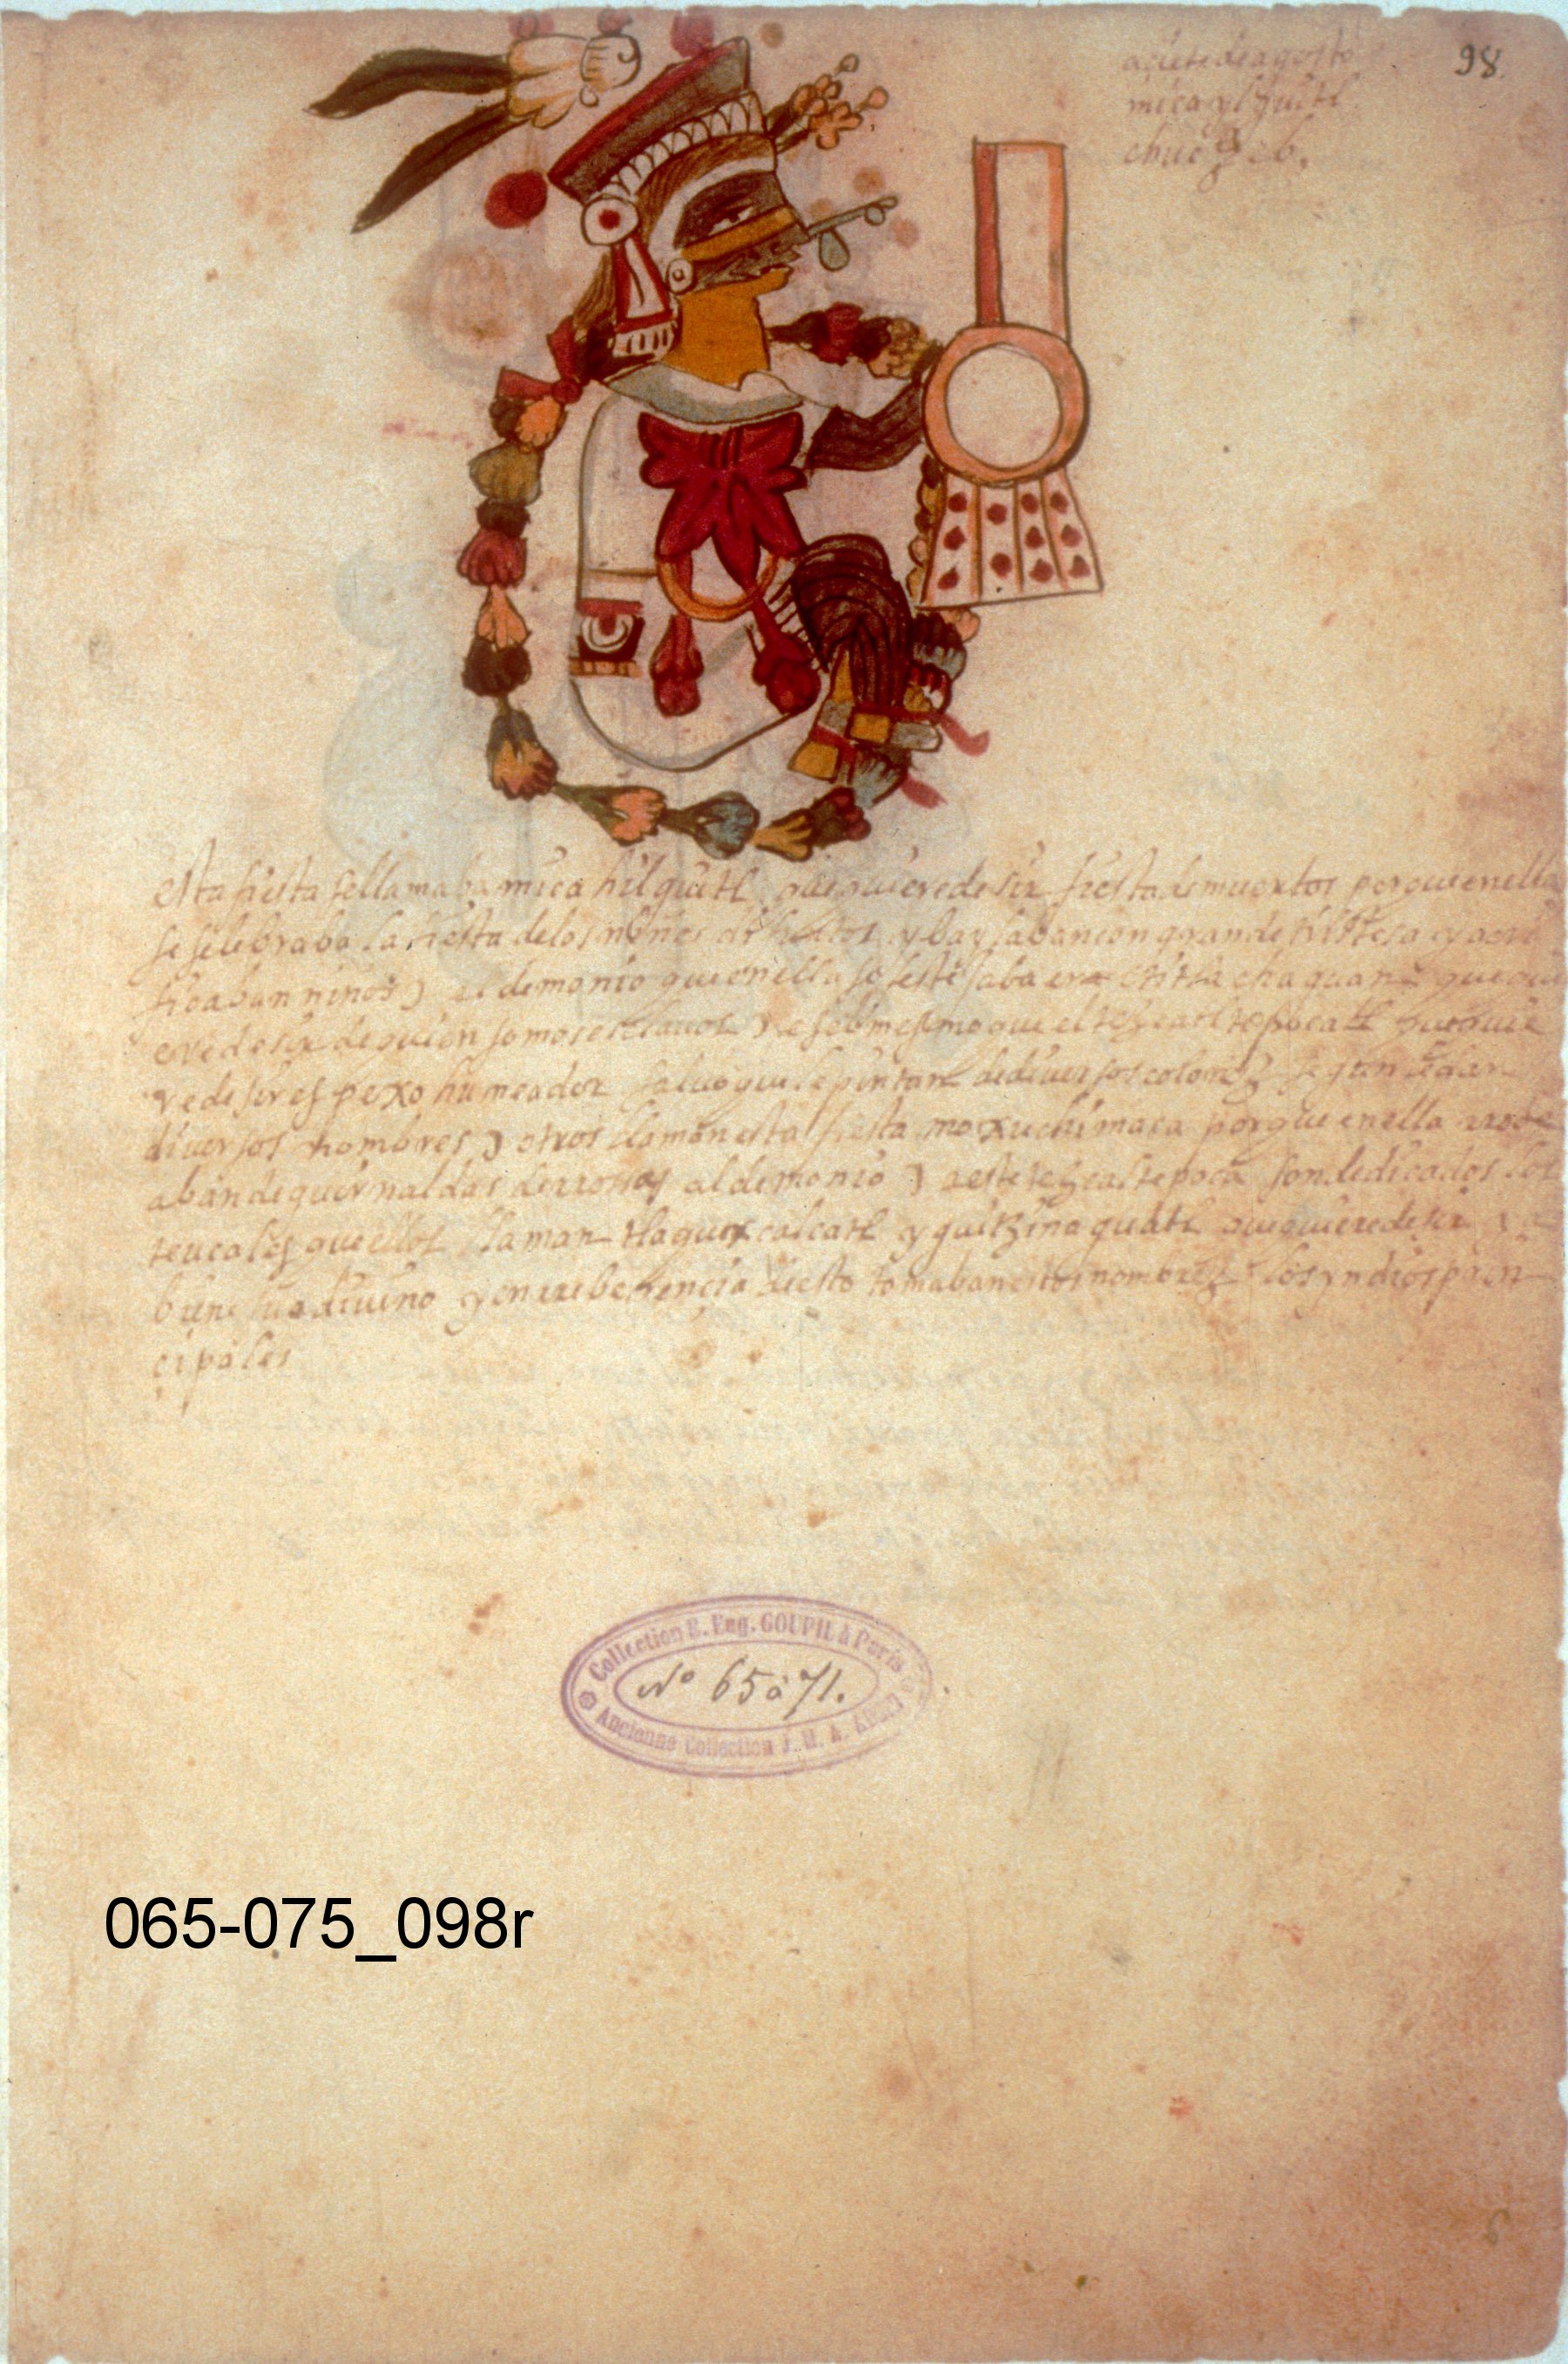 98
a siete de agosto
micaylguitl
esta fiesta se llamaba mica hil guitl que quiere desir fiesta de muertos porque en ella
se selebraba la fiesta de los niños y baylaban con gran de tristesa y
ficaban niños) el demonio que en ella se festesaba era titla chaguan que
ere desir de quien somos esclavos) este es el mesmo que el tezcatltepocatl que quie
re desir espexo humeador salvo que le pintan de diversos colores segun le dan
diversos nombres) otros llaman esta fiesta moxuchimaca porque en ella
aban de guirnaldas de rrosas al demonio) a este tezcaltepoca son dedicados los
teucales que ellos llaman tlaquixcalcatl y guitzinaguatl que quiere desir
y en rreberencia desto tomaban estos nombres los yndios prin
cipales
Collection E. Eug. GOUPIL à Paris
Nº 65 à 71.
Ancienne Collection J. M. A. AUBIN
065-075_098r